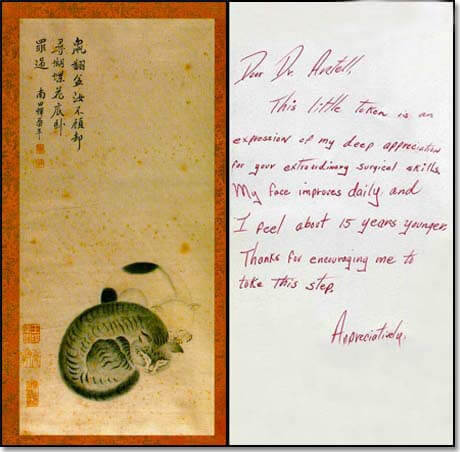 鼠翻盆汝不顧却
尋蝴蝶花底卧
罪過 南田惲壽平
Dear Dr. Antell,
This little token is an
expression of my deep appreciation
for your extraordinary surgical skills.
My face improves daily and
I feel about 15 years younger.
Thanks for encouraging me to
take this step.
Appreciatively,